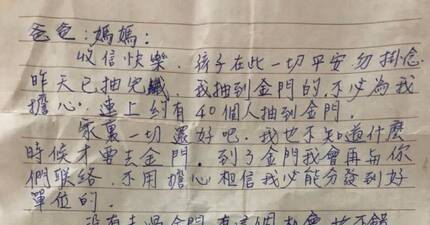 爸爸:媽媽:
收信快樂.孩子在此一切平安勿掛念
昨天已抽完籤,我抽到金門的.不必為我
擔心.連上約有40個人抽到金門.
家裏一切還好吧.我也不知道什麼
時候才要去金門.到了金門我會再與你
們联絡.不用擔心相信我必能分發到好
單位的.
沒有去過金門有這個机會